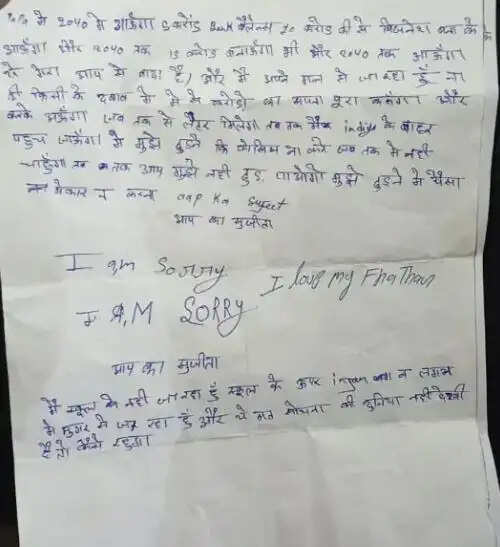 में 2040 में आऊँगा 5 करोड़ Bank बैलेन्स 10 करोड़ की में बिजनेस बना के
आऊँगा और 2040 तक 15 करोड़ कमाऊँगा भी और 2040 तक आऊँगा
ये मेरा आप से वादा है, और मैं अपने मन से जा रहा हूँ ना
की किसी के दबाव में में में करोड़ो का सपना पुरा करूंगा और
बनके आऊँगा जब तक ये लेटर मिलेगा तब तक मैं India के बाहर
पहुच जाऊँगा में मुझे ढुडने कि कोसिस ना करे जब तक में नही
चाहुँगा तब तक आप मुझे नही ढुड़ पाओगे मुझे ढुडने में पैसा
बेकार न करना aap ka
आप का सुजीता
I am Sorry I love my
I A,M SORRY
आप का सुजीता
मैं स्कूल से नही जा रहा हूँ स्कूल के ऊपर न लगाना
में घर से जा रहा हूँ और ये मत सोचना की दुनिया नही देखी
है तो कैसे रहुगा